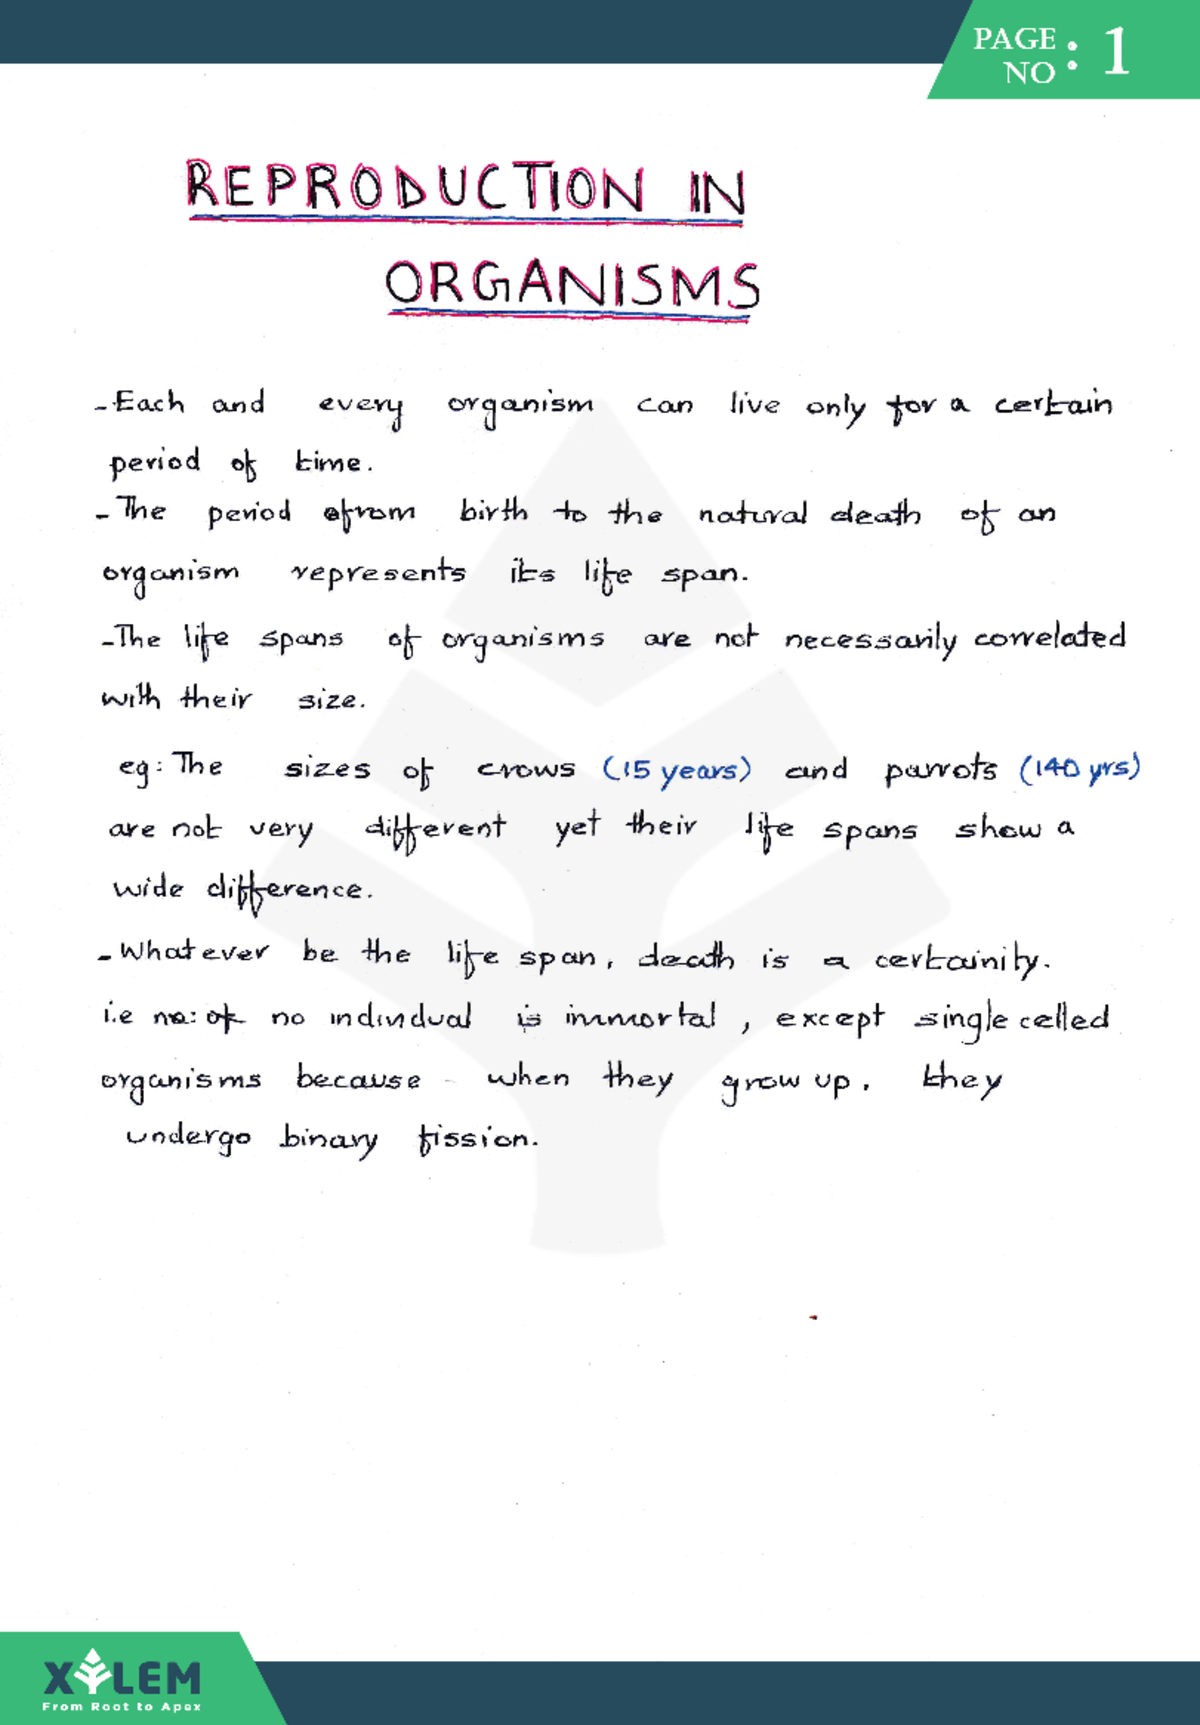 PAGE NO : 1
REPRODUCTION IN
ORGANISMS
- Each and every organism can live only for a certain
period of time.
- The period from birth to the natural death of an
organism represents its life span.
- The life spans of organisms are not necessarily correlated
with their size.
eg: The sizes of crows (15 years) and parrots (140 yrs)
are not very different yet their life spans show a
wide difference.
- Whatever be the life span, death is a certainity.
i.e no: of no individual is immortal, except single celled
organisms because - when they grow up. they
undergo binary fission.
XYLEM
From Root to Apex